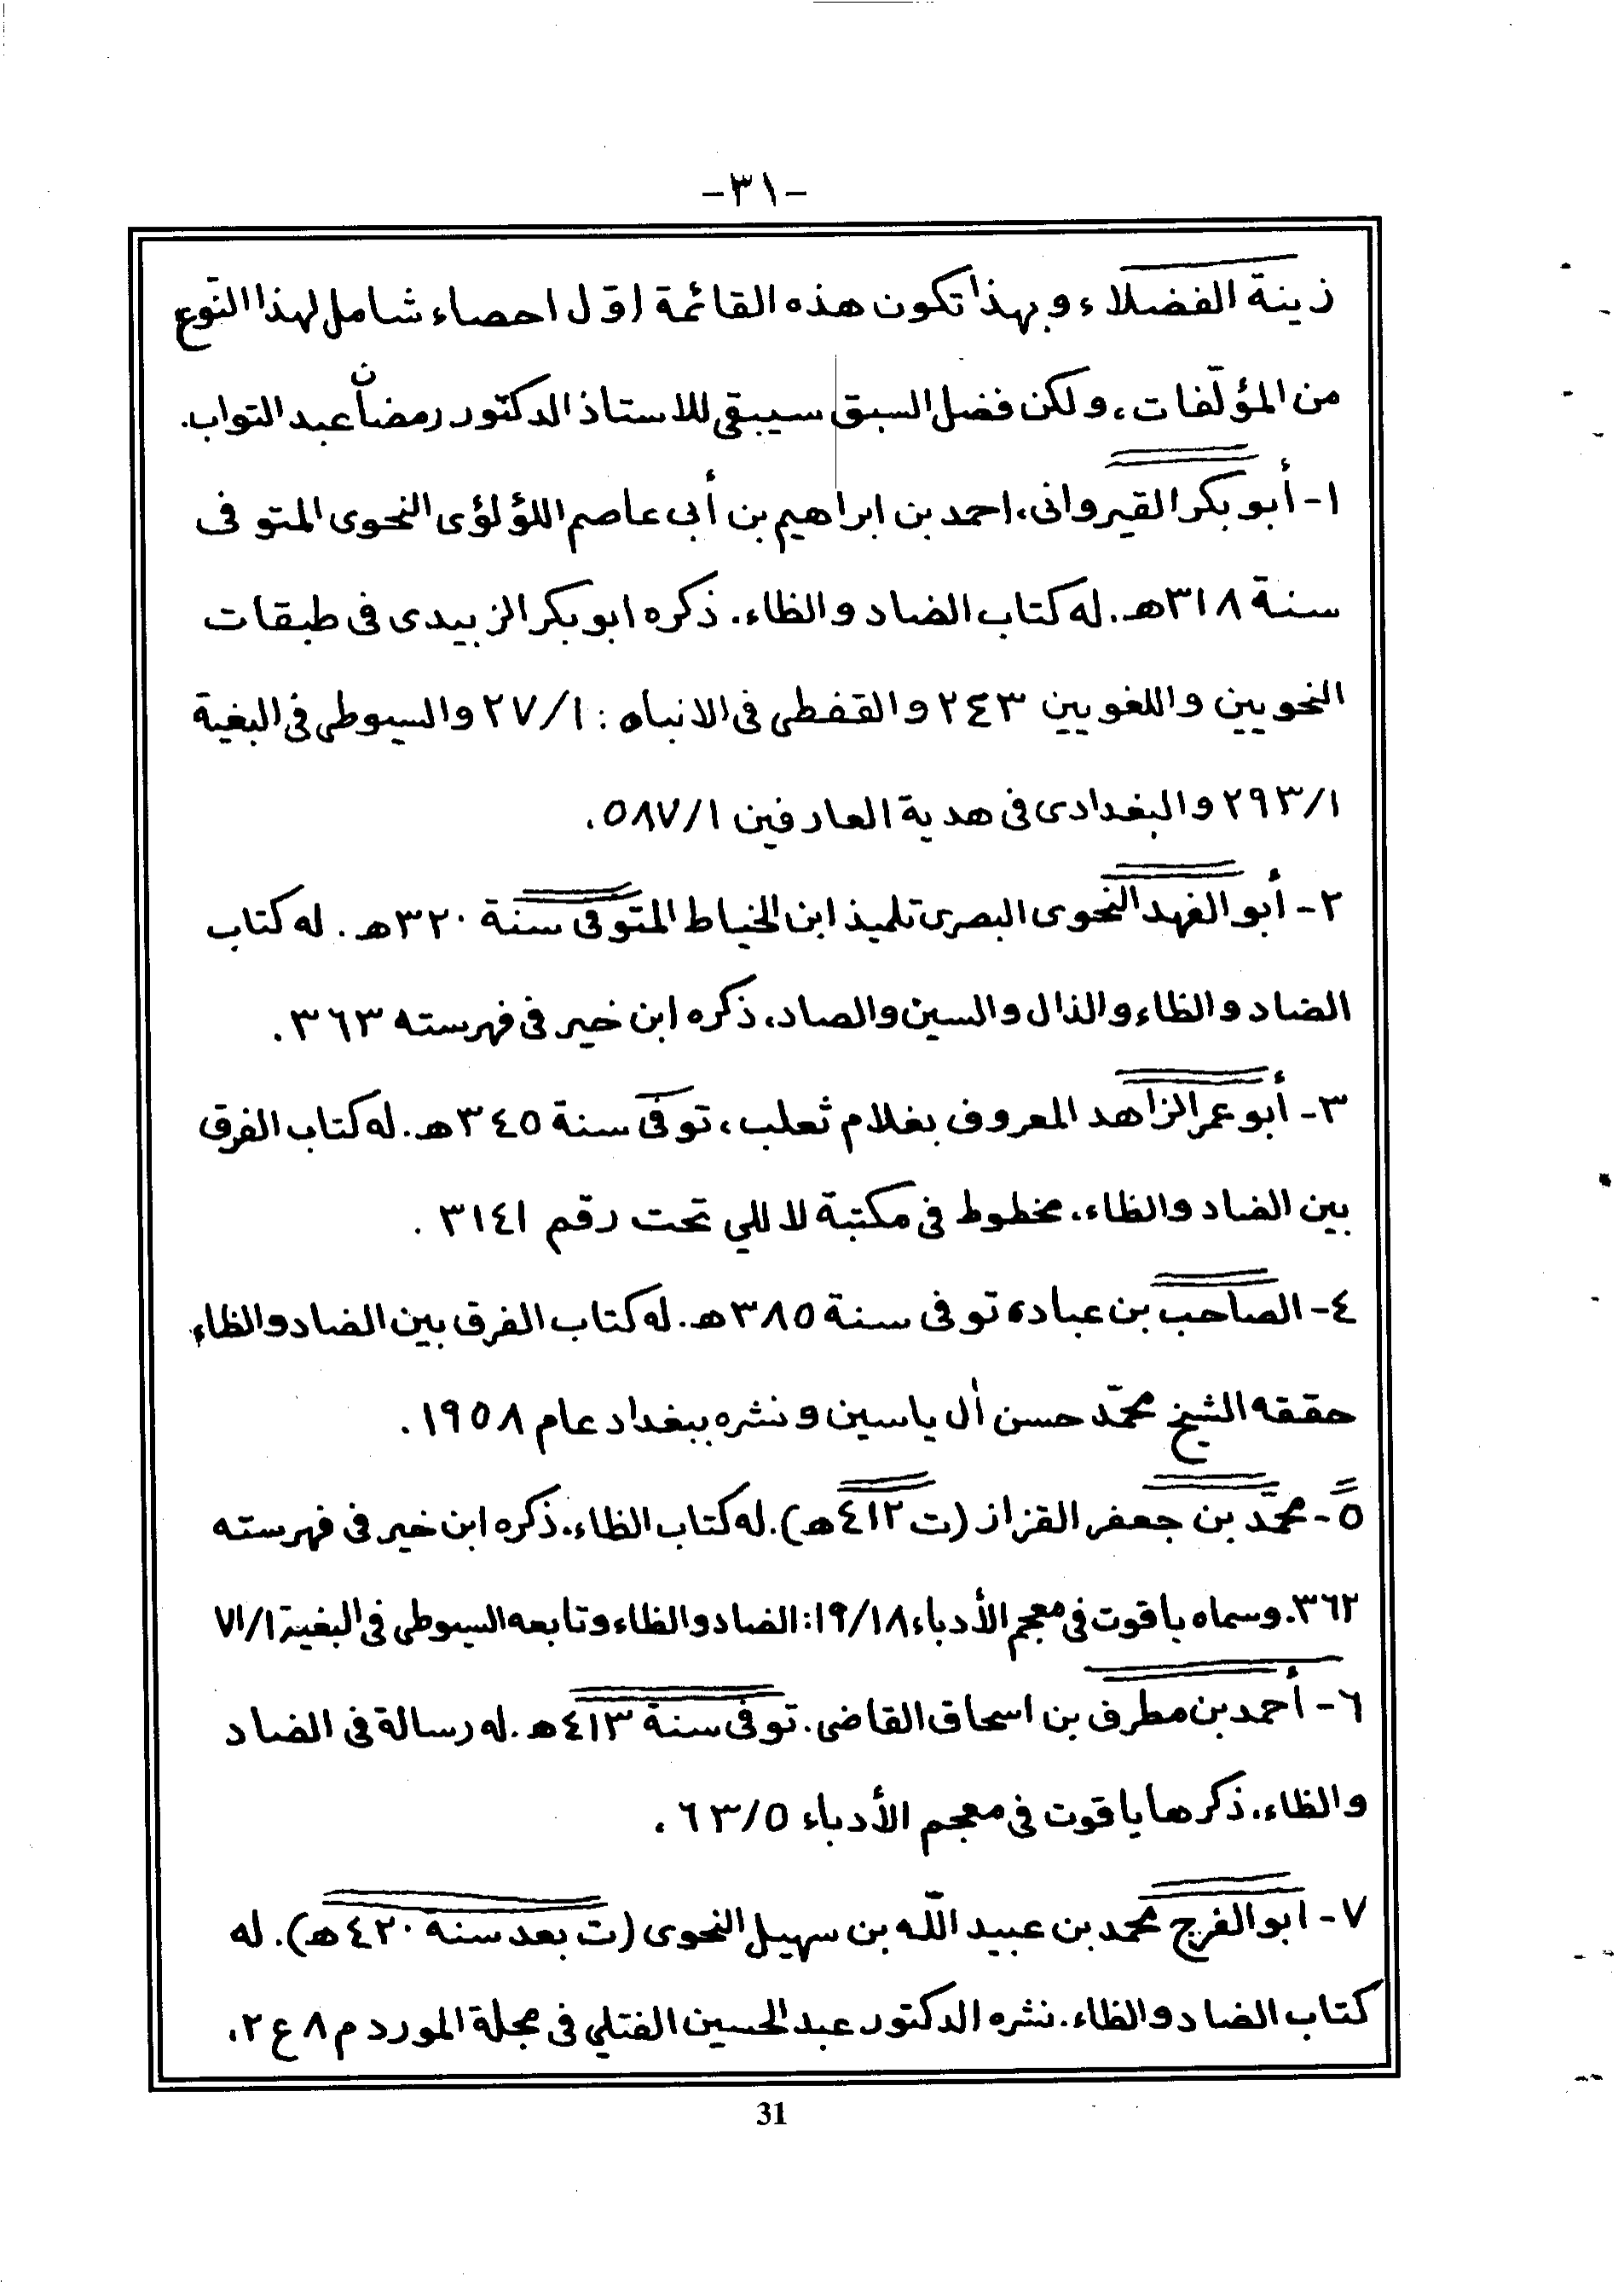 -٣١-
زينة الفضلاء وبهذا تكون هذه القائمة اوّل احصاء شامل لهذا النّوع
من المؤلّفات، ولكن فضل السبق سيبقى للاستاذ الدكتور رمضان عبد التواب.
١- أبو بكر القيروانى، احمد بن ابراهيم بن أبى عاصم اللؤلؤى النحوى المتوفى
سنة ٣١٨هـ. له كتاب الضاد والظاء. ذكره ابو بكر الزبيدى فى طبقات
النحويين واللغويين ٢٤٣ والقفطى فى الانباه: ٢٧/١ والسيوطى فى البغية
٢٩٣/١ والبغدادى فى هدية العارفين ٥٨٧/١.
٢- أبو الفهد النحوى البصرى تلميذ ابن الخياط المتوفى سنة ٣٢٠هـ. له كتاب
الضاد والظاء والذال والسين والصاد، ذكره ابن خير فى فهرسته ٣٦٣.
٣- أبو عمر الزاهد المعروف بغلام ثعلب، توفى سنة ٣٤٥هـ. له كتاب الفرق
بين الضاد والظاء. مخطوط فى مكتبة لا للي تحت رقم ٣١٤١.
٤- الصاحب بن عباده توفى سنة ٣٨٥هـ. له كتاب الفرق بين الضاد والظاء
حققه الشيخ محمّد حسن أل ياسين ونشره ببغداد عام ١٩٥٨.
٥- محمّد بن جعفر القزاز (ت ٤١٢هـ). له كتاب الظاء. ذكره ابن خير فى فهرسته
٣٦٢. وسماه ياقوت فى معجم الأدباء ١٩/١٨: الضاد والظاء وتابعه السيوطى فى البغية ٧١/١
٦- أحمد بن مطرف بن اسحاق القاضى. توفى سنة ٤١٣هـ. له رسالة فى الضاد
والظاء. ذكرها ياقوت فى معجم الأدباء ٦٣/٥.
٧- ابو الفرج محمد بن عبيد اللّه بن سهيل النحوى (ت بعد سنة ٤٢٠هـ). له
كتاب الضاد والظاء. نشره الدكتور عبد الحسين الفتلي فى مجلة المورد م ٨ ع ٢.
31